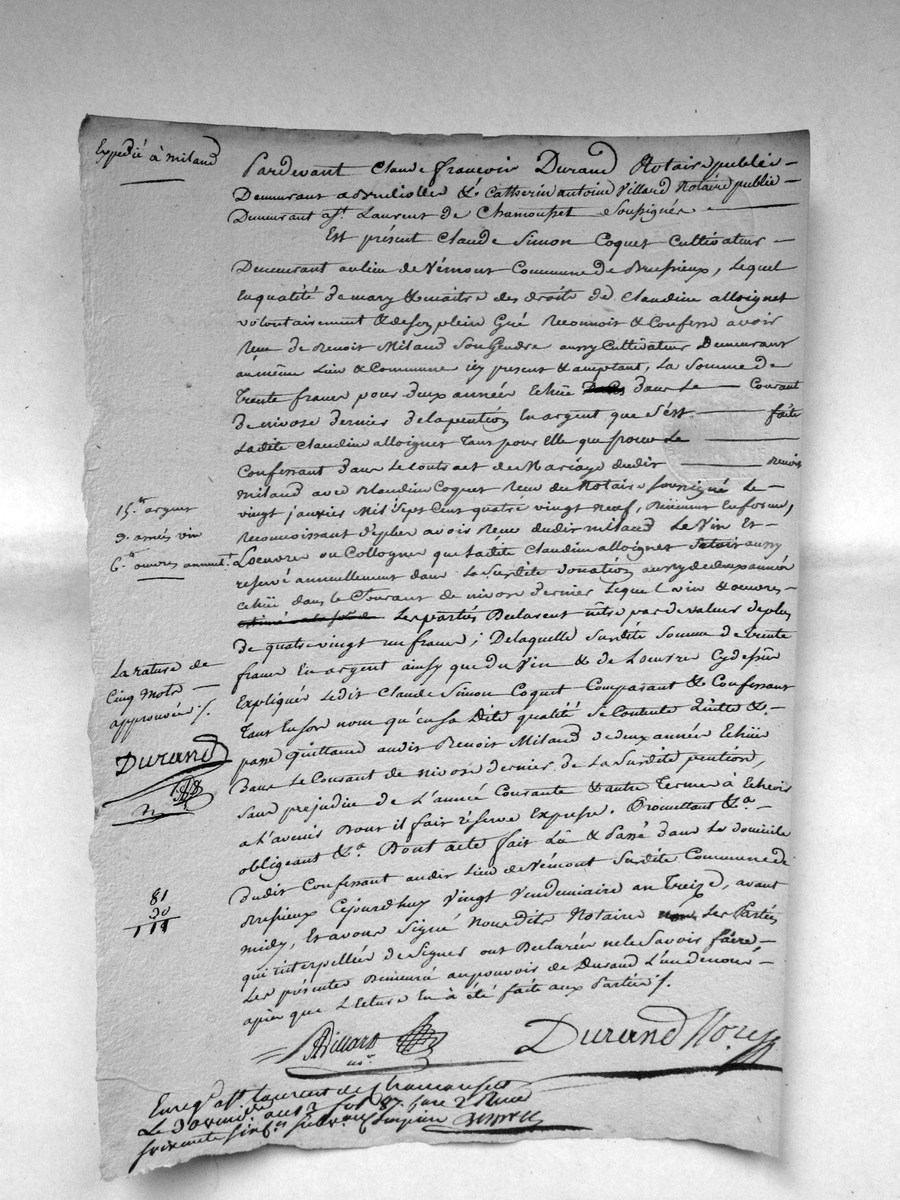 Expedié à milaud
Pardevant Claude françois Durand Notaire public
Demeurant a Brulliolles & Catherin Antoine Villard Notaire public
Demeurant a St. Laurent de Chamousset Soussignés
Est présent Claude Simon Coquet Cultivateur
Demeurant au lieu de Vémont Commune de Brussieux, Lequel
En qualité de mary & maitre des droits de Claudine alloignet
volontairement & de son plein Gré Reconnoit & Confesse avoir
Reçu de Benoit Milaud Son Gendre aussy Cultivateur Demeurant
au même Lieu & Commune icy present & acceptant, La Somme de
Trente francs pour deux années Echüe dans Le Courant
de nivose dernier de la pention En argent que S'est faite
Ladite Claudine alloignet Tant pour Elle que pour Le
Confessant dans Le Contract de Mariage dudit Benoit
milaud avec Claudine Coquet Reçu du Notaire Soussigné Le
vingt janvier Mil Sept Cent quatre vingt neuf, En forme,
Reconnoissant de plus avoir Reçu dudit milaud Le Vin Et
Loeuvre ou Collogne que Ladite Claudine alloignet S'etoit aussy
reservé annuellement dans La Susdite donation aussy de deux années
Echüe dans le Courant de nivose dernier Lequel vin & oeuvres
Les parties Declarent n'être pas de valeur de plus
de quatre vingt un francs ; De laquelle Susdite Somme de Trente
francs En argent ainsy que du Vin & de Loeuvre Cy dessus
Expliqués Ledit Claude Simon Coquet Comparant & Confessant
Tant En son nom qu'en sa Dite qualité Se Contente Quitte &
passe quittance audit Benoit Milaud de deux années Echües
Dans Le Courant de nivose dernier de La Susdite pention,
Sans prejudice de L'année Courante & autre Terme à Echoir
a L'avenir Dont il fait réserve Expresse. Promettant &a.
obligeant &a. Dont acte fait Lû & Passé dans Le domicile
Dudit Confessant audit Lieu de Vémont Susdite Commune de
Brussieux Cejourdhuy Vingt Vendemiaire an Treize, avant
midy, Et avons Signé Nousdits Notaires Les Parties
qui interpellées de Signer ont Declarés ne le Savoir faire
Les présentes Demeurés au pouvoir de Durand L'un de nous
après que Lecture En à été faite aux Parties ./.
15.# argent
9. anées vin
6.# ouvres annuel.t
La rature de
Cinq Mots
approuvée ./.
Durand
81
30
111
Villard
nre.
Durand Nore
Enregé. a St. Laurent de Chamousset
Le 30 vend. an 13 fol 87. Case 2 Reçu